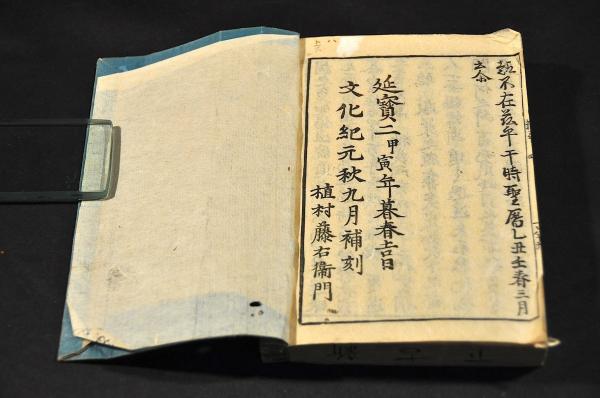 趣不在茲乎于時聖曆乙丑壬春三月
云尒
延寶二甲寅年暮春吉日
文化紀元秋九月補刻
植村藤右衞門